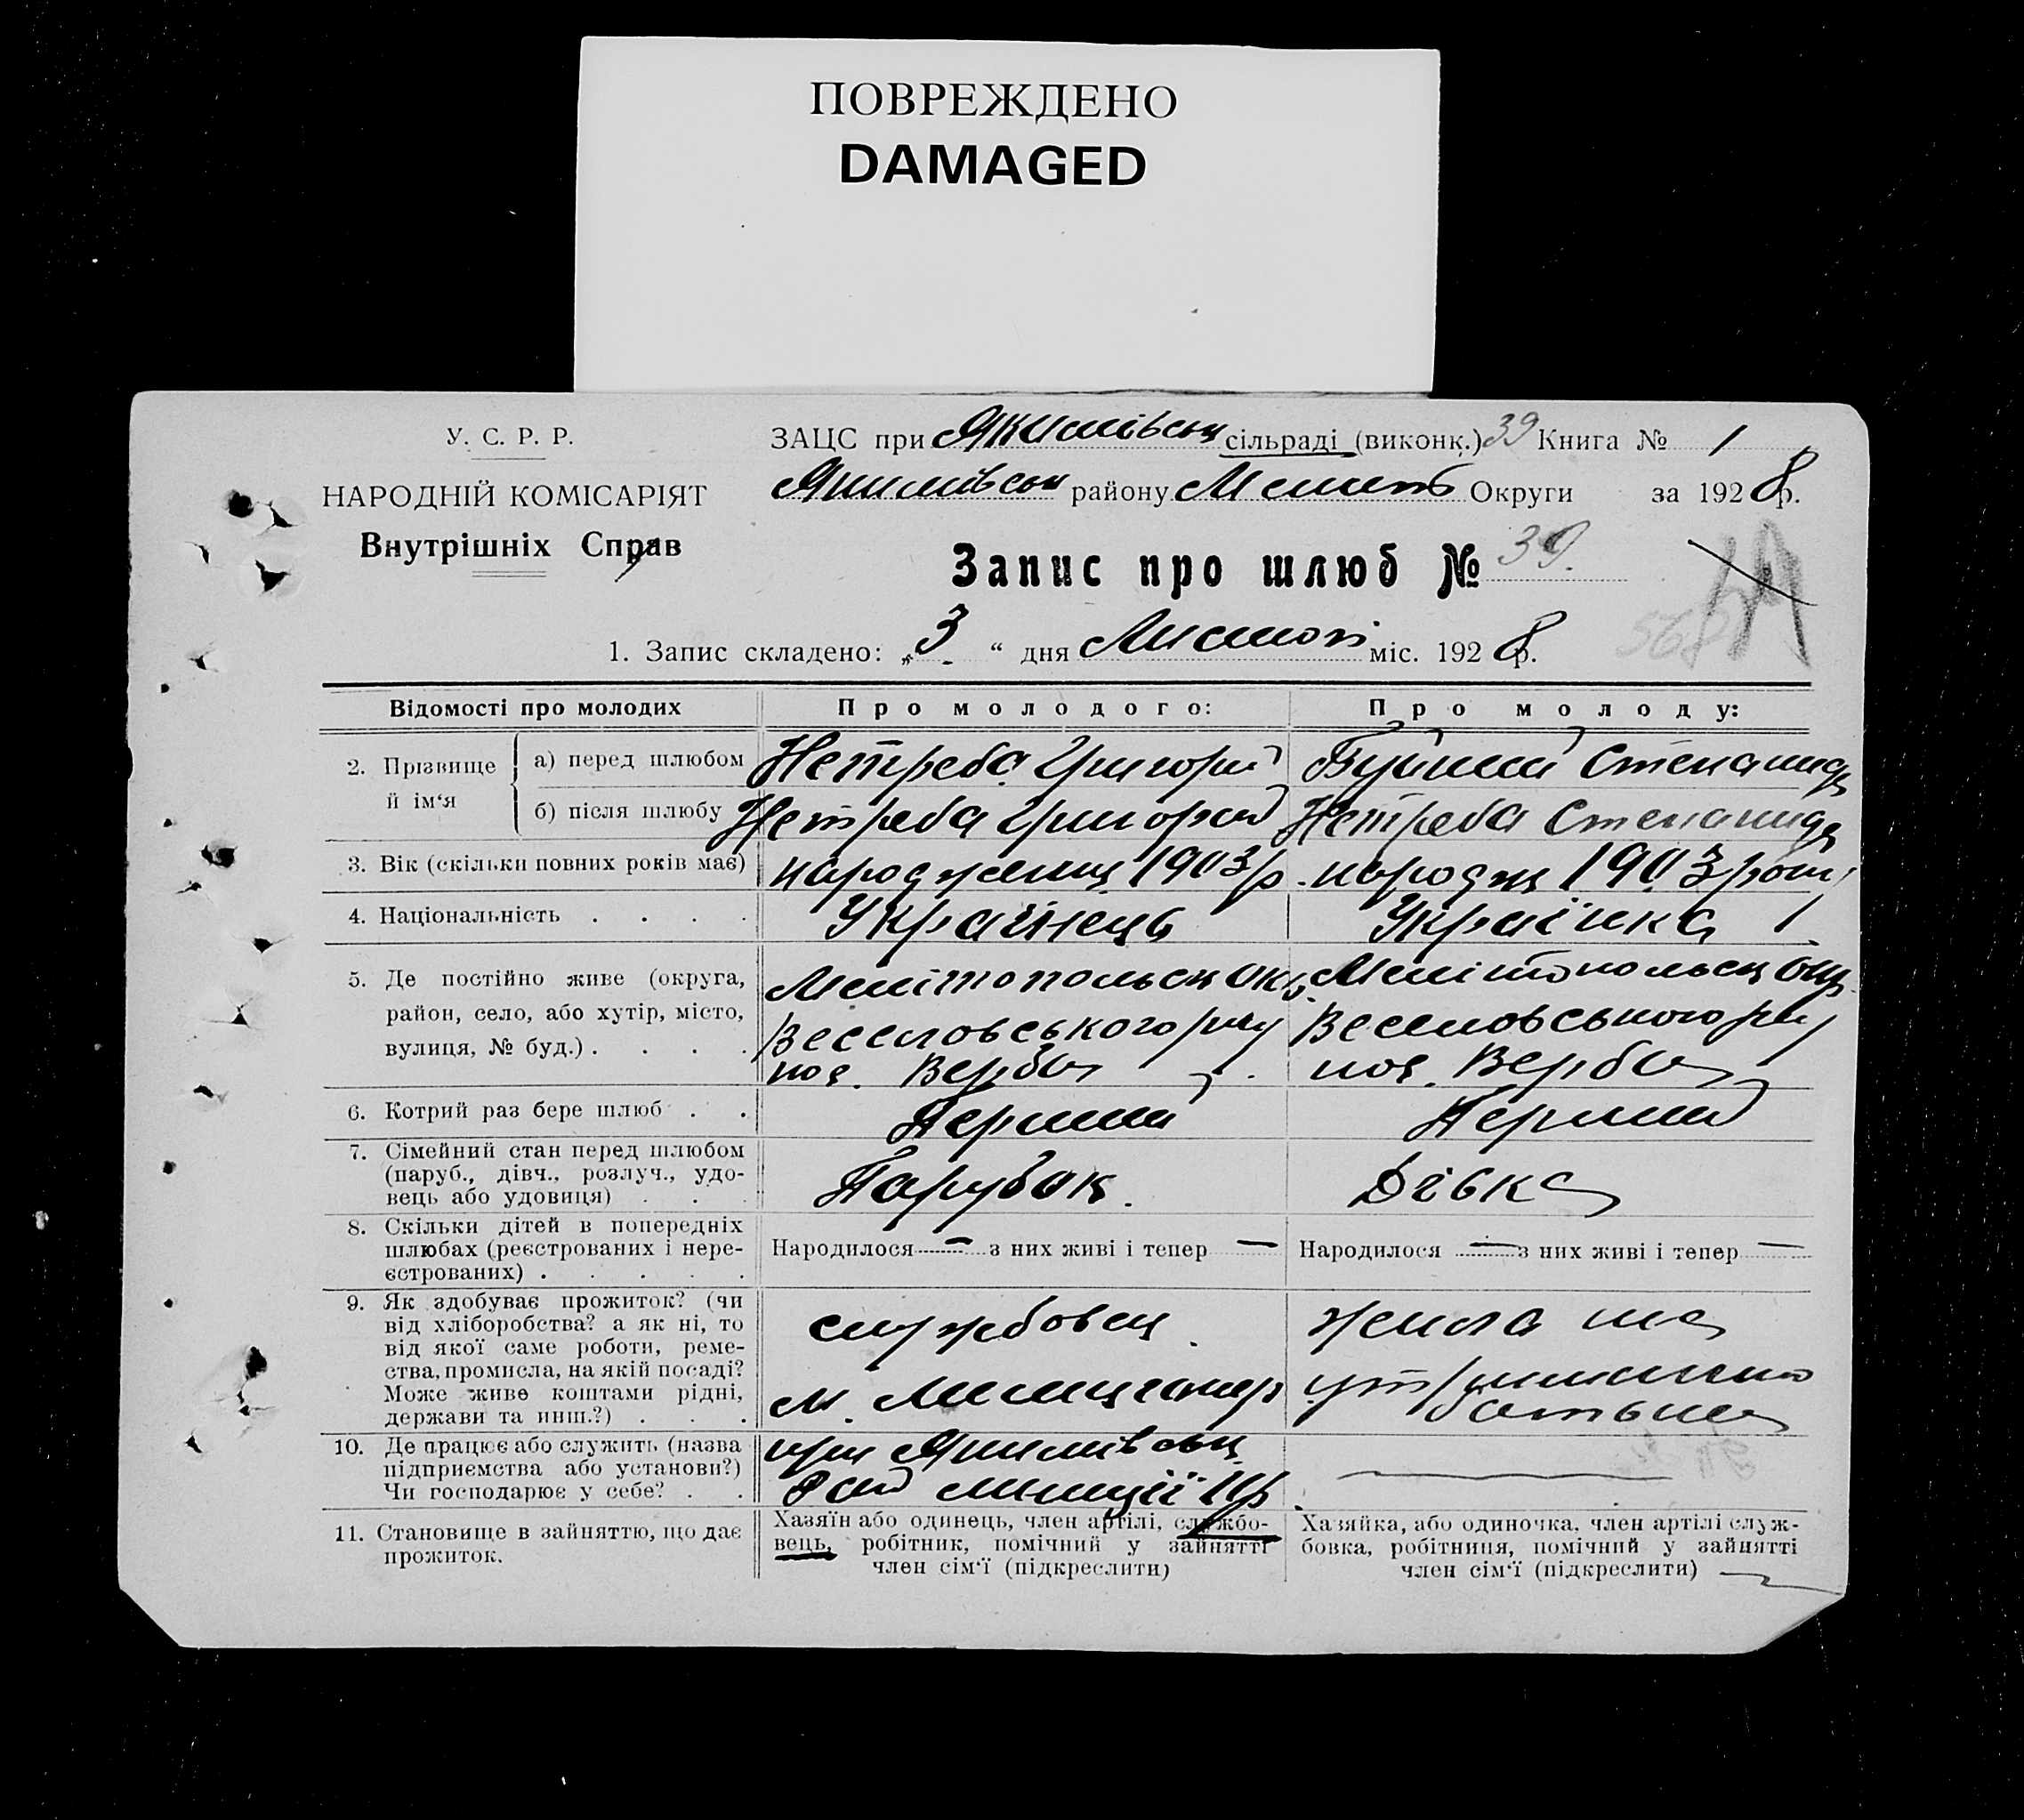 ПОВРЕЖДЕНО
DAMAGED
У. С. Р. Р.
НАРОДНІЙ КОМІСАРІЯТ
Внутрішніх Справ
ЗАЦС при Якимівськ сільраді (виконк.) 39 Книга № 1
Якимівськ району Меліт Округи за 1928 р.
Запис про шлюб № 39.
1. Запис складено: „3“ дня міс. 1928 р.
Відомості про молодих
Про молодого:
Про молоду:
2. Прізвище й ім‘я
а) перед шлюбом
Нетреба Григорій
Степанида
б) після шлюбу
Нетреба Григорій
Нетреба Степанида
3. Вік (скільки повних років має)
1903 р.
народж 1903 році
4. Національність . . . .
Українець
Українка
5. Де постійно живе (округа,
район, село, або хутір, місто,
вулиця, № буд.) . . . .
Мелітопольськ Окр.
Веселовського р-ну
пос. Верба
Мелітопольськ Окр.
Веселовського р-ну
пос. Верба
6. Котрий раз бере шлюб . .
Перший
Перший
7. Сімейний стан перед шлюбом
(паруб., дівч., розлуч., удо-
вець або удовиця) . . .
Парубок.
Дівка
8. Скільки дітей в попередніх
шлюбах (реєстрованих і нере-
єстрованих) . . . . .
Народилося — з них живі і тепер —
Народилося — з них живі і тепер —
9. Як здобуває прожиток? (чи
від хліборобства? а як ні, то
від якої саме роботи, реме-
ства, промисла, на якій посаді?
Може живе коштами рідні,
держави та инш.?) . . .
службовец
м. Милиціонер
жила на
утриманню
батька
10. Де працює або служить (назва
підприємства або установи?)
Чи господарює у себе? . .
при Якимівськ
Рай міліції
11. Становище в зайняттю, що дає
прожиток.
Хазяїн або одинець, член артілі, службо-
вець, робітник, помічний у зайнятті
член сім‘ї (підкреслити)
Хазяйка, або одиночка, член артілі служ-
бовка, робітниця, помічний у зайнятті
член сім‘ї (підкреслити)